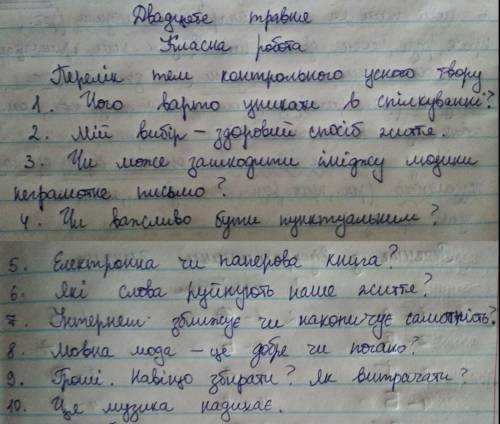 Двадцяте травня
Класна робота
Перелік тем контрольного усного твору
1. Чого варто уникати в спілкуванні?
2. Мій вибір – здоровий спосіб життя.
3. Чи може зашкодити іміджу людини
неграмотне письмо?
4. Чи важливо бути пунктуальним?
5. Електронна чи паперова книга?
6. Які слова руйнують наше життя?
7. Інтернет зближує чи накопичує самотність?
8. Мовна мода – це добре чи погано?
9. Гроші. Навіщо збирати? Як витрачати?
10. Ця музика надихає.